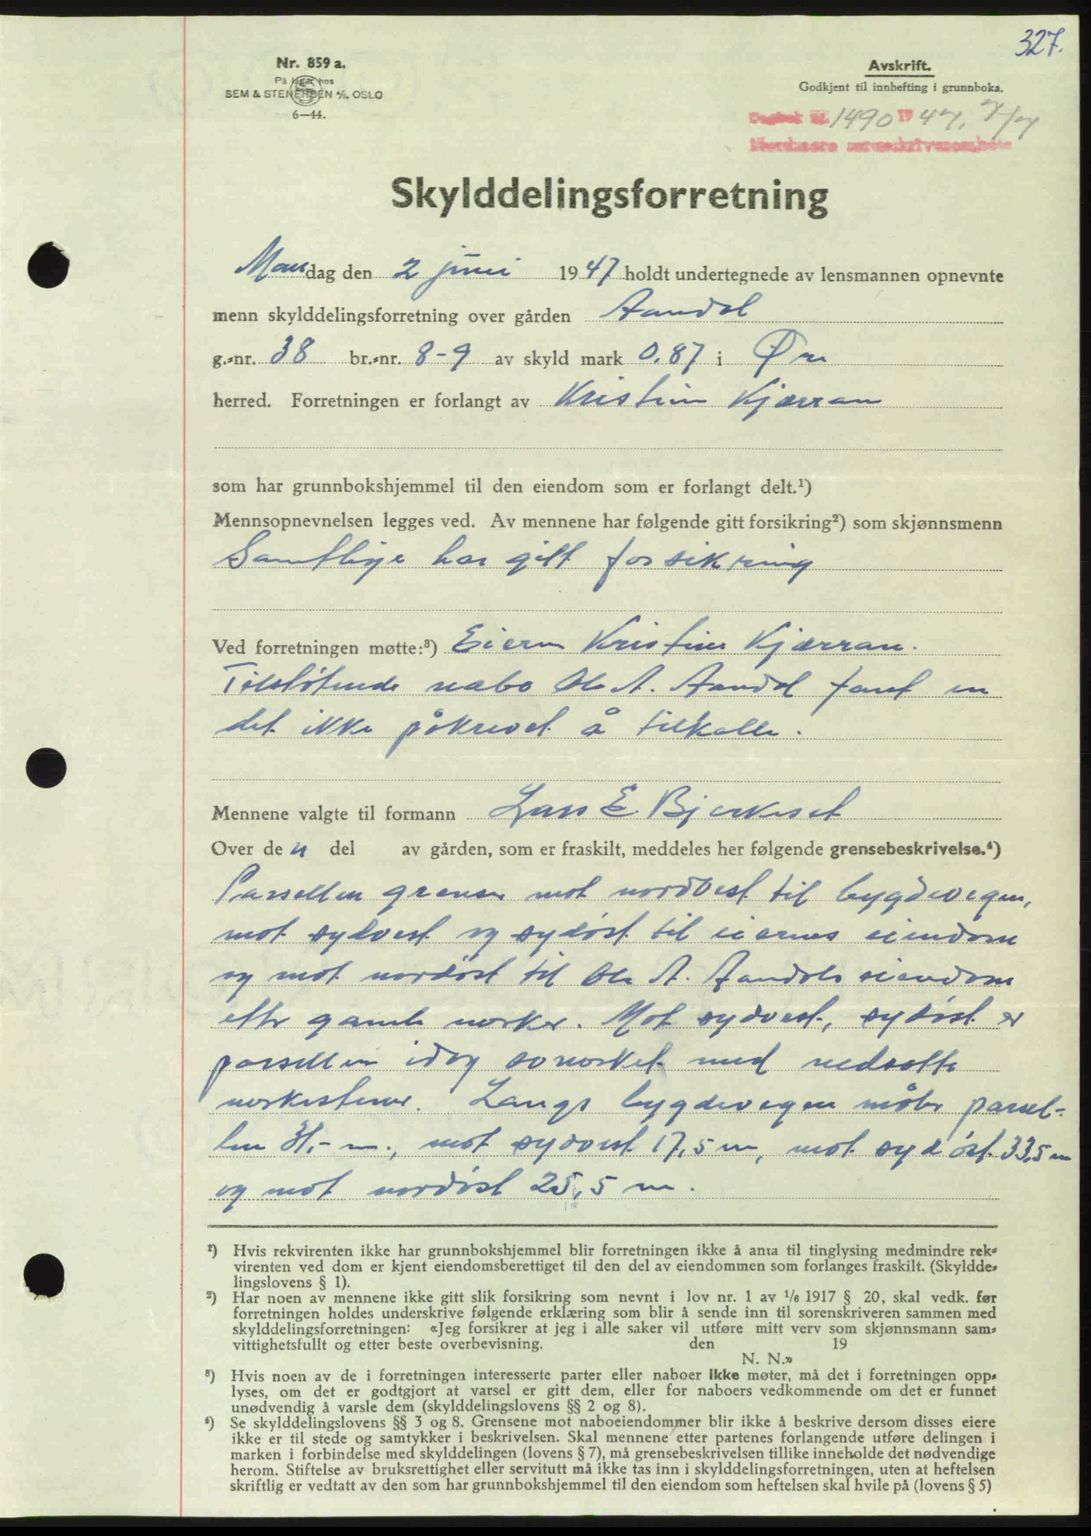 327.
Nr. 859 a.
På lager hos
SEM & STENERSEN A/S, OSLO
6—44.
Avskrift.
Godkjent til innhefting i grunnboka.
Dagbok nr. 1490 1947, 7/7
Nordmøre sorenskriverembete
Skylddelingsforretning
Mandag den 2 juni 1947 holdt undertegnede av lensmannen opnevnte
menn skylddelingsforretning over gården Aandal
g.-nr. 38 br.-nr. 8-9 av skyld mark 0.87 i Øre
herred. Forretningen er forlangt av Kristine Kjærran
som har grunnbokshjemmel til den eiendom som er forlangt delt.¹)
Mennsopnevnelsen legges ved. Av mennene har følgende gitt forsikring²) som skjønnsmenn
Samtlige har gitt forsikring
Ved forretningen møtte:³) Eieren Kristine Kjærran.
Tilstøtende nabo Ole A. Aandal fant en
det ikke påkrevet å tilkalle.
Mennene valgte til formann Lars E. Bjerkeset
Over den del av gården, som er fraskilt, meddeles her følgende grensebeskrivelse.⁴)
Parsellen grenser mot nordvest til bygdevegen,
mot sydvest og sydøst til eierens eiendom
og mot nordøst til Ole A. Aandals eiendom
etter gamle merker. Mot sydvest, sydøst er
parsellen idag avmerket med nedsatte
merkestener. Langs bygdevegen måler parsel-
len 31,- m., mot sydvest 17,5 m, mot sydøst 33,5 m
og mot nordøst 25,5 m.
¹) Hvis rekvirenten ikke har grunnbokshjemmel blir forretningen ikke å anta til tinglysing medmindre rek-
virenten ved dom er kjent eiendomsberettiget til den del av eiendommen som forlanges fraskilt. (Skyldde-
lingslovens § 1).
²) Har noen av mennene ikke gitt slik forsikring som nevnt i lov nr. 1 av ¹/₆ 1917 § 20, skal vedk. før
forretningen holdes underskrive følgende erklæring som blir å sende inn til sorenskriveren sammen med
skylddelingsforretningen: «Jeg forsikrer at jeg i alle saker vil utføre mitt verv som skjønnsmann sam-
vittighetsfullt og etter beste overbevisning. den 19
N. N.»
³) Hvis noen av de i forretningen interesserte parter eller naboer ikke møter, må det i forretningen opp-
lyses, om det er godtgjort at varsel er gitt dem, eller for naboers vedkommende om det er funnet
unødvendig å varsle dem (skylddelingslovens §§ 2 og 8).
⁴) Se skylddelingslovens §§ 3 og 8. Grensene mot naboeiendommer blir ikke å beskrive dersom disses eiere
ikke er til stede og samtykker i beskrivelsen. Skal mennene etter partenes forlangende utføre delingen i
marken i forbindelse med skylddelingen (lovens § 7), må grensebeskrivelsen tillike inneholde det nødvendige
herom. Stiftelse av bruksrettighet eller servitutt må ikke tas inn i skylddelingsforretningen, uten at heftelsen
skriftlig er vedtatt av den som har grunnbokshjemmel til den eiendom som heftelsen skal hvile på (lovens § 5)